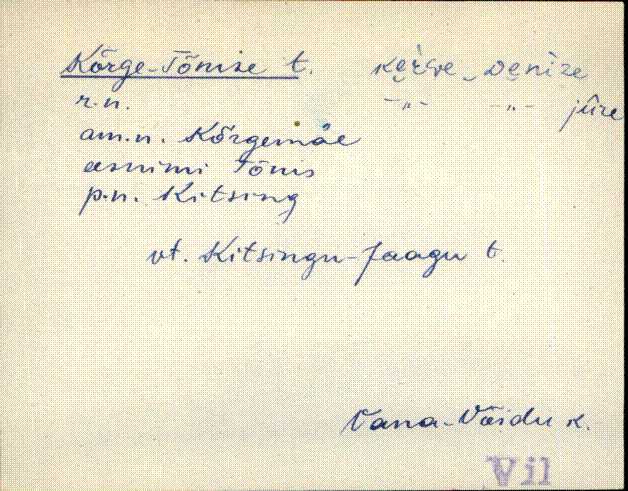 Kõrge-Tõnise t. kẹrɢe-ᴅẹnize
r.n. -"- -"- jüre
am.n. Kõrgemäe
esnimi Tõnis
p.n. Kitsing
vt. Kitsingu-Jaagu t.
Vana-Võidu k.
Vil